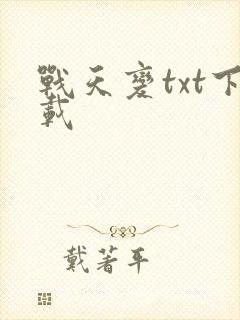 戰天變txt下
載
戴著平